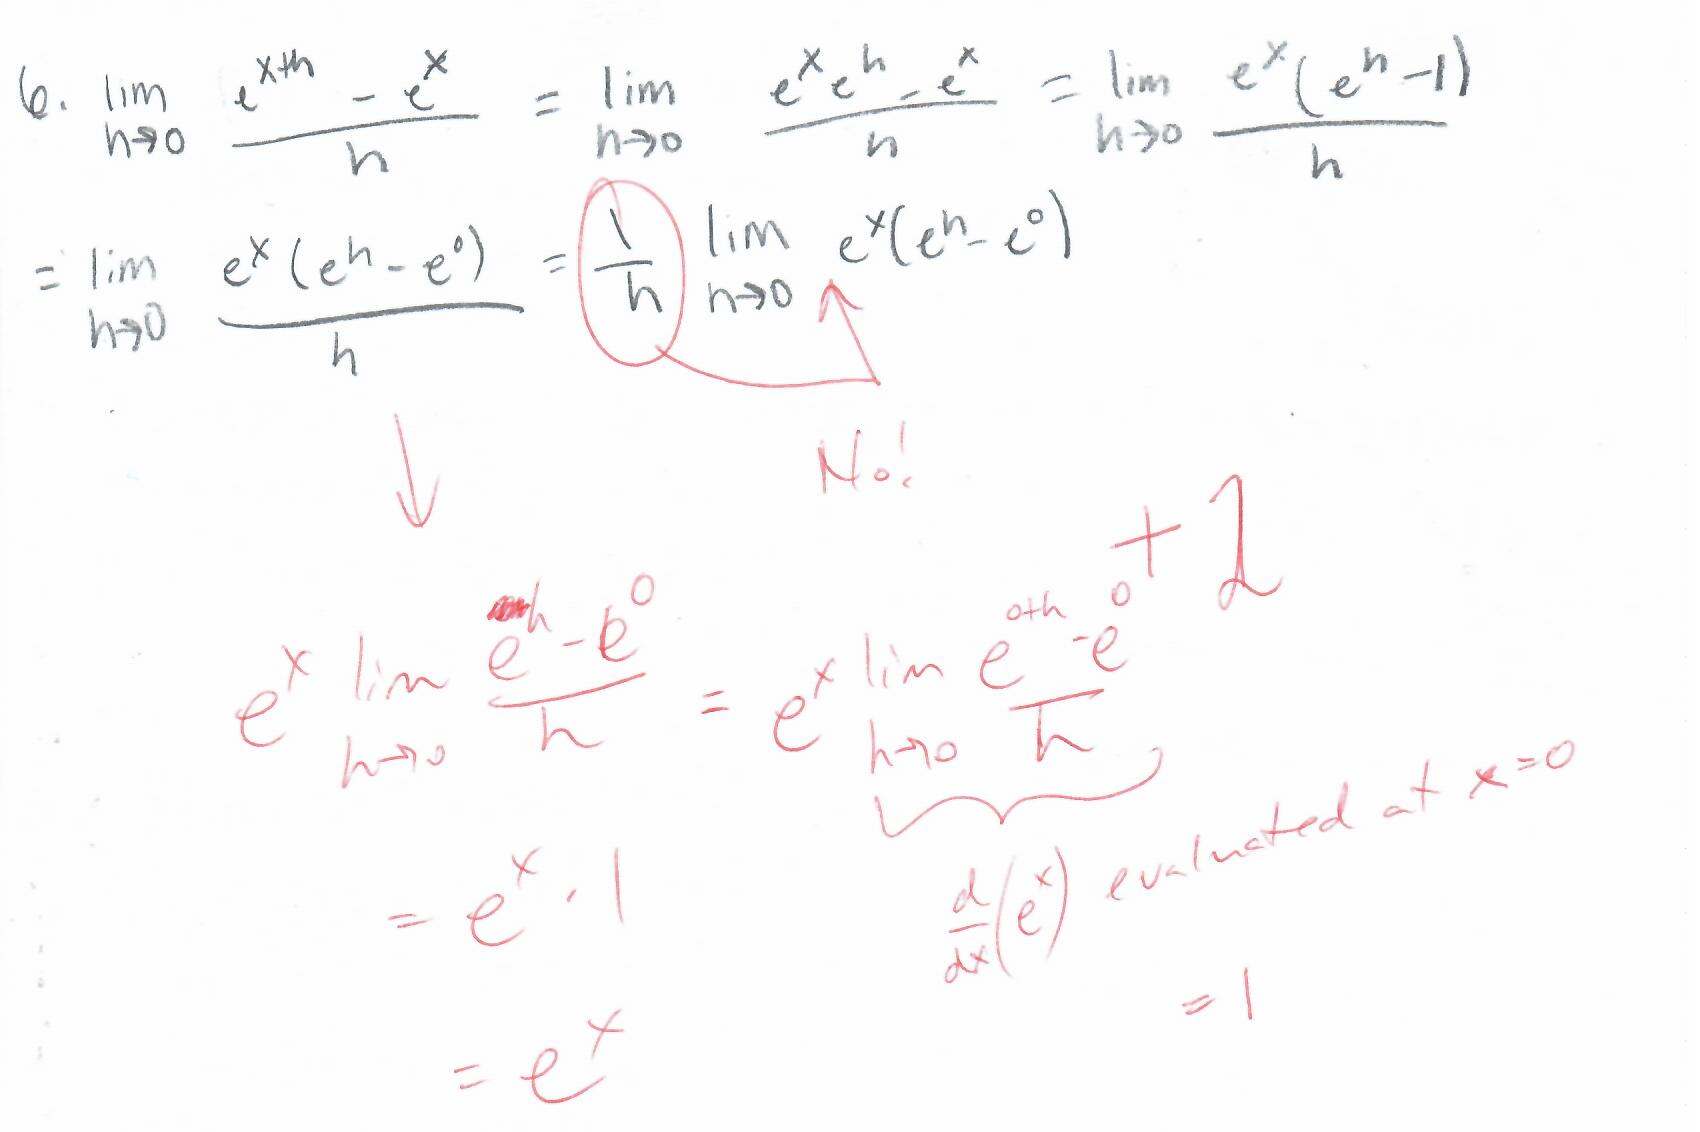 6. lim h→0 (e^{x+h} - e^x)/h = lim h→0 (e^x e^h - e^x)/h = lim h→0 e^x(e^h - 1)/h
= lim h→0 e^x(e^h - e^0)/h = 1/h lim h→0 e^x(e^h - e^0)
No!
+2
e^x lim h→0 (e^h - e^0)/h = e^x lim h→0 (e^{0+h} - e^0)/h
= e^x · 1
d/dx (e^x) evaluated at x=0
= 1
= e^x